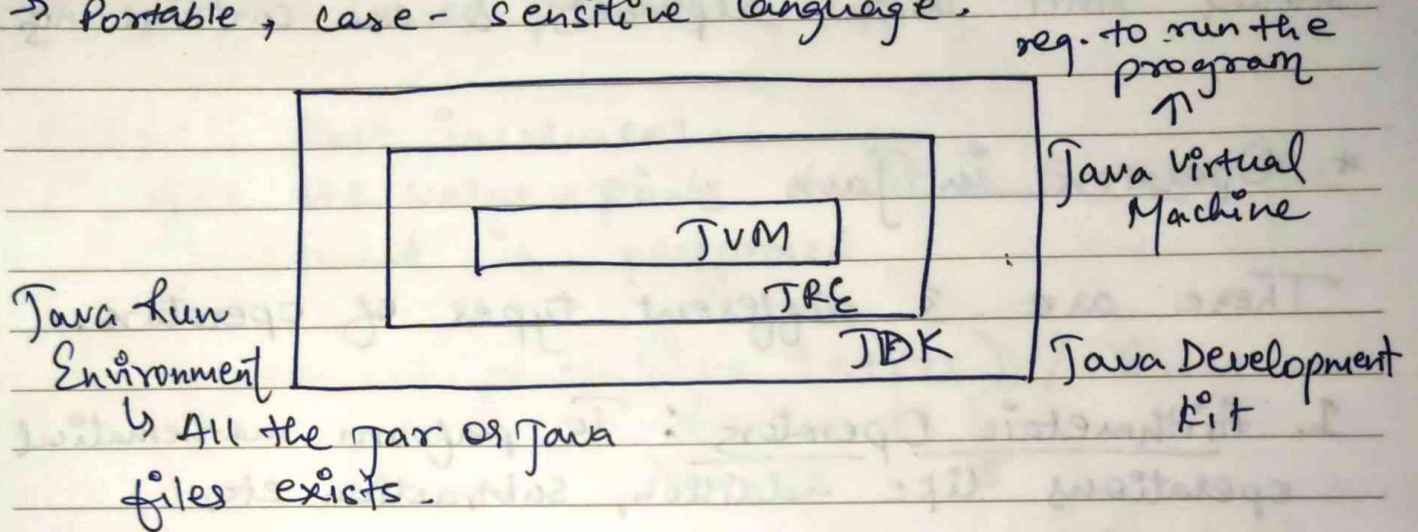 → Portable, case-sensitive language.
req. to run the
program
↑
Java Virtual
Machine
JVM
JRE
JDK
Java Run
Environment
↳ All the Jar or Java
files exists.
Java Development
Kit